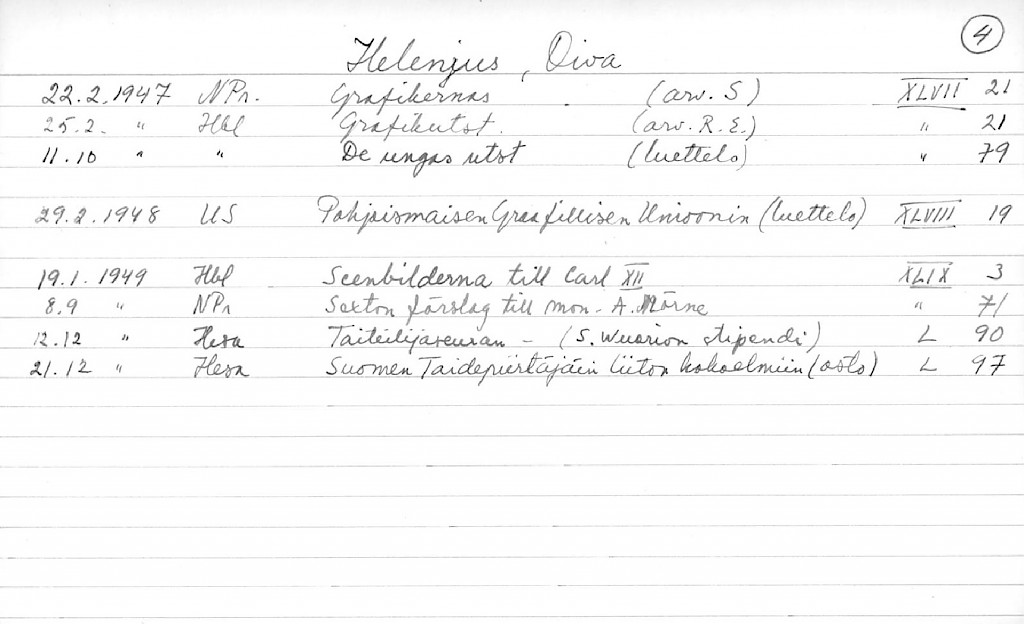 4
Helenius, Oiva
22.2.1947 NPr. Grafikernas (arv. S) XLVII 21
25.2. " Hbl Grafikutst. (arv. R.E.) " 21
11.10 " " De ungas utst (luettelo) " 79
29.2.1948 US Pohjoismaisen Graafillisen Unioonin (luettelo) XLVIII 19
19.1.1949 Hbl Scenbilderna till Carl XII XLIX 3
8.9 " NPr Sexton förslag till mon. A. Mörne " 71
12.12 " Hesa Taiteilijaseuran - (S. Wuorion stipendi) L 90
21.12 " Hesa Suomen Taidepiirtäjäin liiton kokoelmiin (osto) L 97